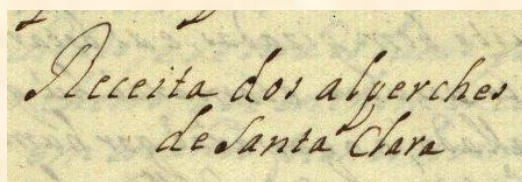 Receita dos alperches
de Santa Clara